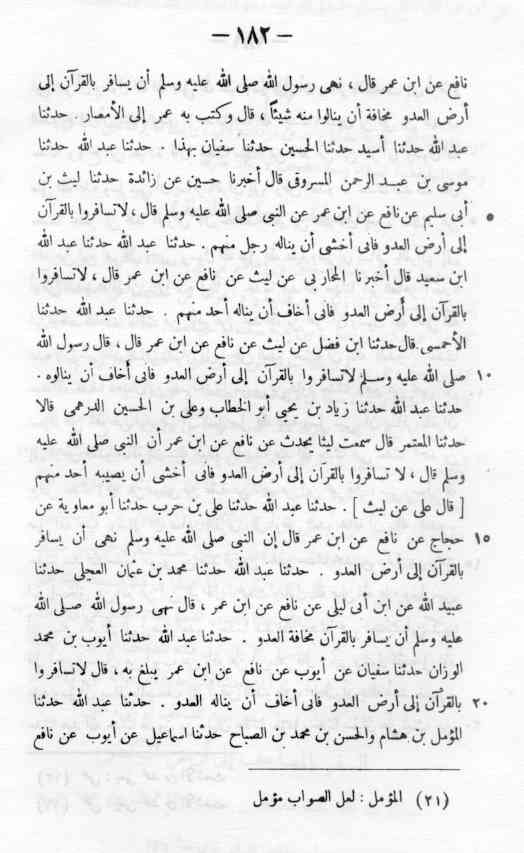 — ١٨٢ —
نافع عن ابن عمر قال ، نهى رسول الله صلى الله عليه وسلم أن يسافر بالقرآن إلى
أرض العدو مخافة أن ينالوا منه شيئاً ، قال وكتب به عمر إلى الأمصار . حدثنا
عبد الله حدثنا أسيد حدثنا الحسين حدثنا سفيان بهذا . حدثنا عبد الله حدثنا
موسى بن عبد الرحمن المسروقى قال أخبرنا حسين عن زائدة حدثنا ليث بن
أبى سليم عن نافع عن ابن عمر عن النبى صلى الله عليه وسلم قال ، لاتسافروا بالقرآن
إلى أرض العدو فانى أخشى أن يناله رجل منهم . حدثنا عبد الله حدثنا عبد الله
ابن سعيد قال أخبرنا المحاربى عن ليث عن نافع عن ابن عمر قال ، لاتسافروا
بالقرآن إلى أرض العدو فانى أخاف أن يناله أحد منهم . حدثنا عبد الله حدثنا
الأحمسى قال حدثنا ابن فضل عن ليث عن نافع عن ابن عمر قال ، قال رسول الله
١٠ صلى الله عليه وسلم لاتسافروا بالقرآن إلى أرض العدو فانى أخاف أن ينالوه .
حدثنا عبد الله حدثنا زياد بن يحيى أبو الخطاب وعلى بن الحسين الدرهمى قالا
حدثنا المعتمر قال سمعت ليثا يحدث عن نافع عن ابن عمر أن النبى صلى الله عليه
وسلم قال ، لا تسافروا بالقرآن إلى أرض العدو فانى أخشى أن يصيبه أحد منهم
[ قال على عن ليث ] . حدثنا عبد الله حدثنا على بن حرب حدثنا أبو معاوية عن
١٥ حجاج عن نافع عن ابن عمر قال إن النبى صلى الله عليه وسلم نهى أن يسافر
بالقرآن إلى أرض العدو . حدثنا عبد الله حدثنا محمد بن عثمان العجلى حدثنا
عبيد الله عن ابن أبى ليلى عن نافع عن ابن عمر ، قال نهى رسول الله صلى الله
عليه وسلم أن يسافر بالقرآن مخافة العدو . حدثنا عبد الله حدثنا أيوب بن محمد
الوزان حدثنا سفيان عن أيوب عن نافع عن ابن عمر يبلغ به ، قال لاتسافروا
٢٠ بالقرآن إلى أرض العدو فانى أخاف أن يناله العدو . حدثنا عبد الله حدثنا
المؤمل بن هشام والحسن بن محمد بن الصباح حدثنا اسماعيل عن أيوب عن نافع
(٢١) المؤمل : لعل الصواب مؤمل